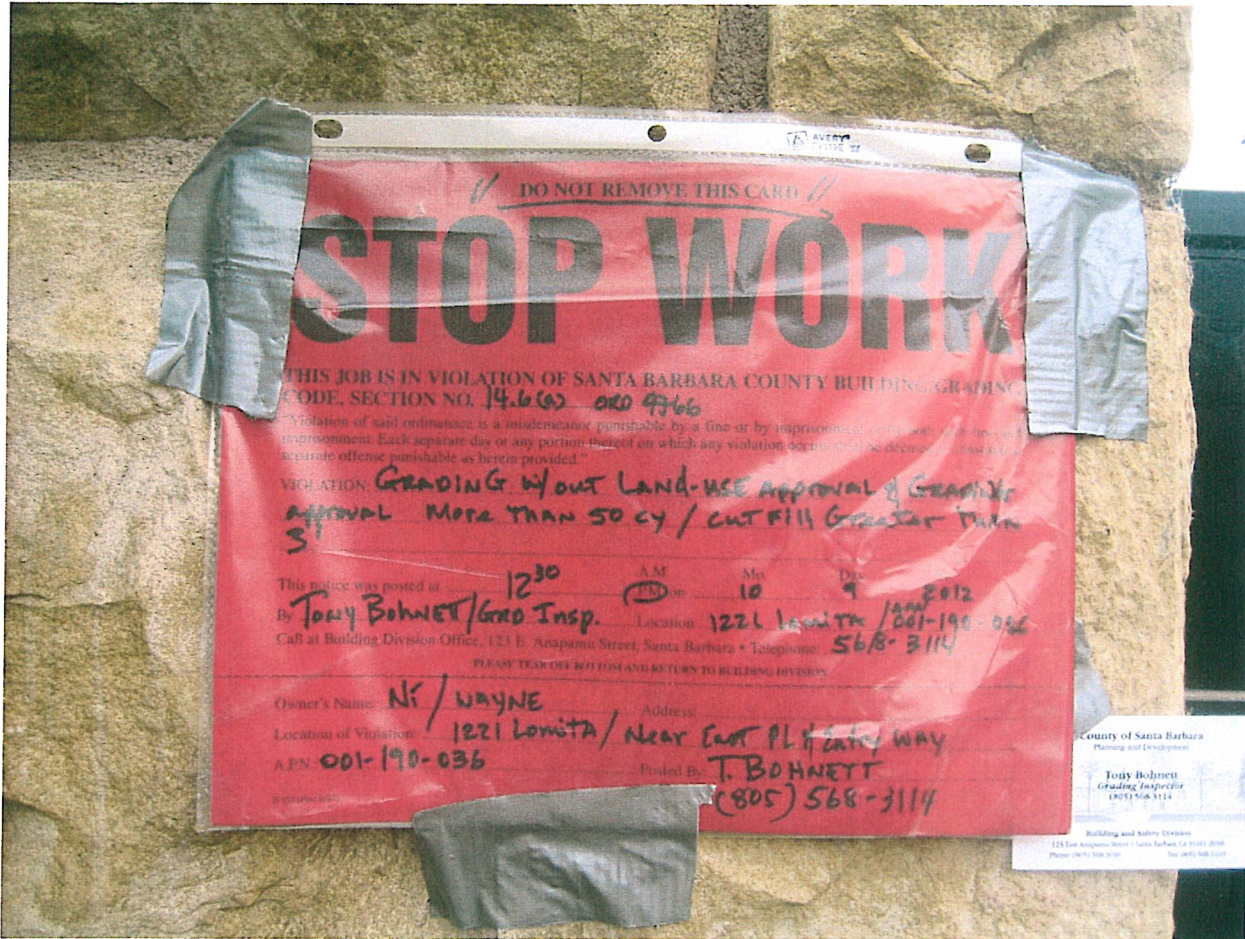 AVERY
" DO NOT REMOVE THIS CARD "
STOP WORK
THIS JOB IS IN VIOLATION OF SANTA BARBARA COUNTY BUILDING/GRADING
CODE, SECTION NO. 14.6(a) ORD 4766
"Violation of said ordinance is a misdemeanor punishable by a fine or by imprisonment, or by both
imprisonment. Each separate day or any portion thereof on which any violation occurs shall be deemed
separate offense punishable as herein provided."
VIOLATION: GRADING W/OUT LAND-USE APPROVAL & GRADING
approval MORE THAN 50 CY / CUT FILL Greater THAN
3'
This notice was posted at 12 30 A.M. P.M. on Mo. 10 Day 9 2012
By Tony BOHNET/GRD Insp. Location 1221 Lomita / APN 001-190-036
Call at Building Division Office, 123 E. Anapamu Street, Santa Barbara • Telephone: 568-3114
PLEASE TEAR OFF BOTTOM AND RETURN TO BUILDING DIVISION
Owner's Name: NI / WAYNE Address:
Location of Violation: 1221 Lomita / Near East PL & Entry WAY
A.P.N. 001-190-036 Posted By: T. BOHNETT
(805) 568-3114
County of Santa Barbara
Planning and Development
Tony Bohnett
Grading Inspector
(805) 568-3114
Building and Safety Division
123 East Anapamu Street • Santa Barbara, CA
Phone: (805) Fax (805)